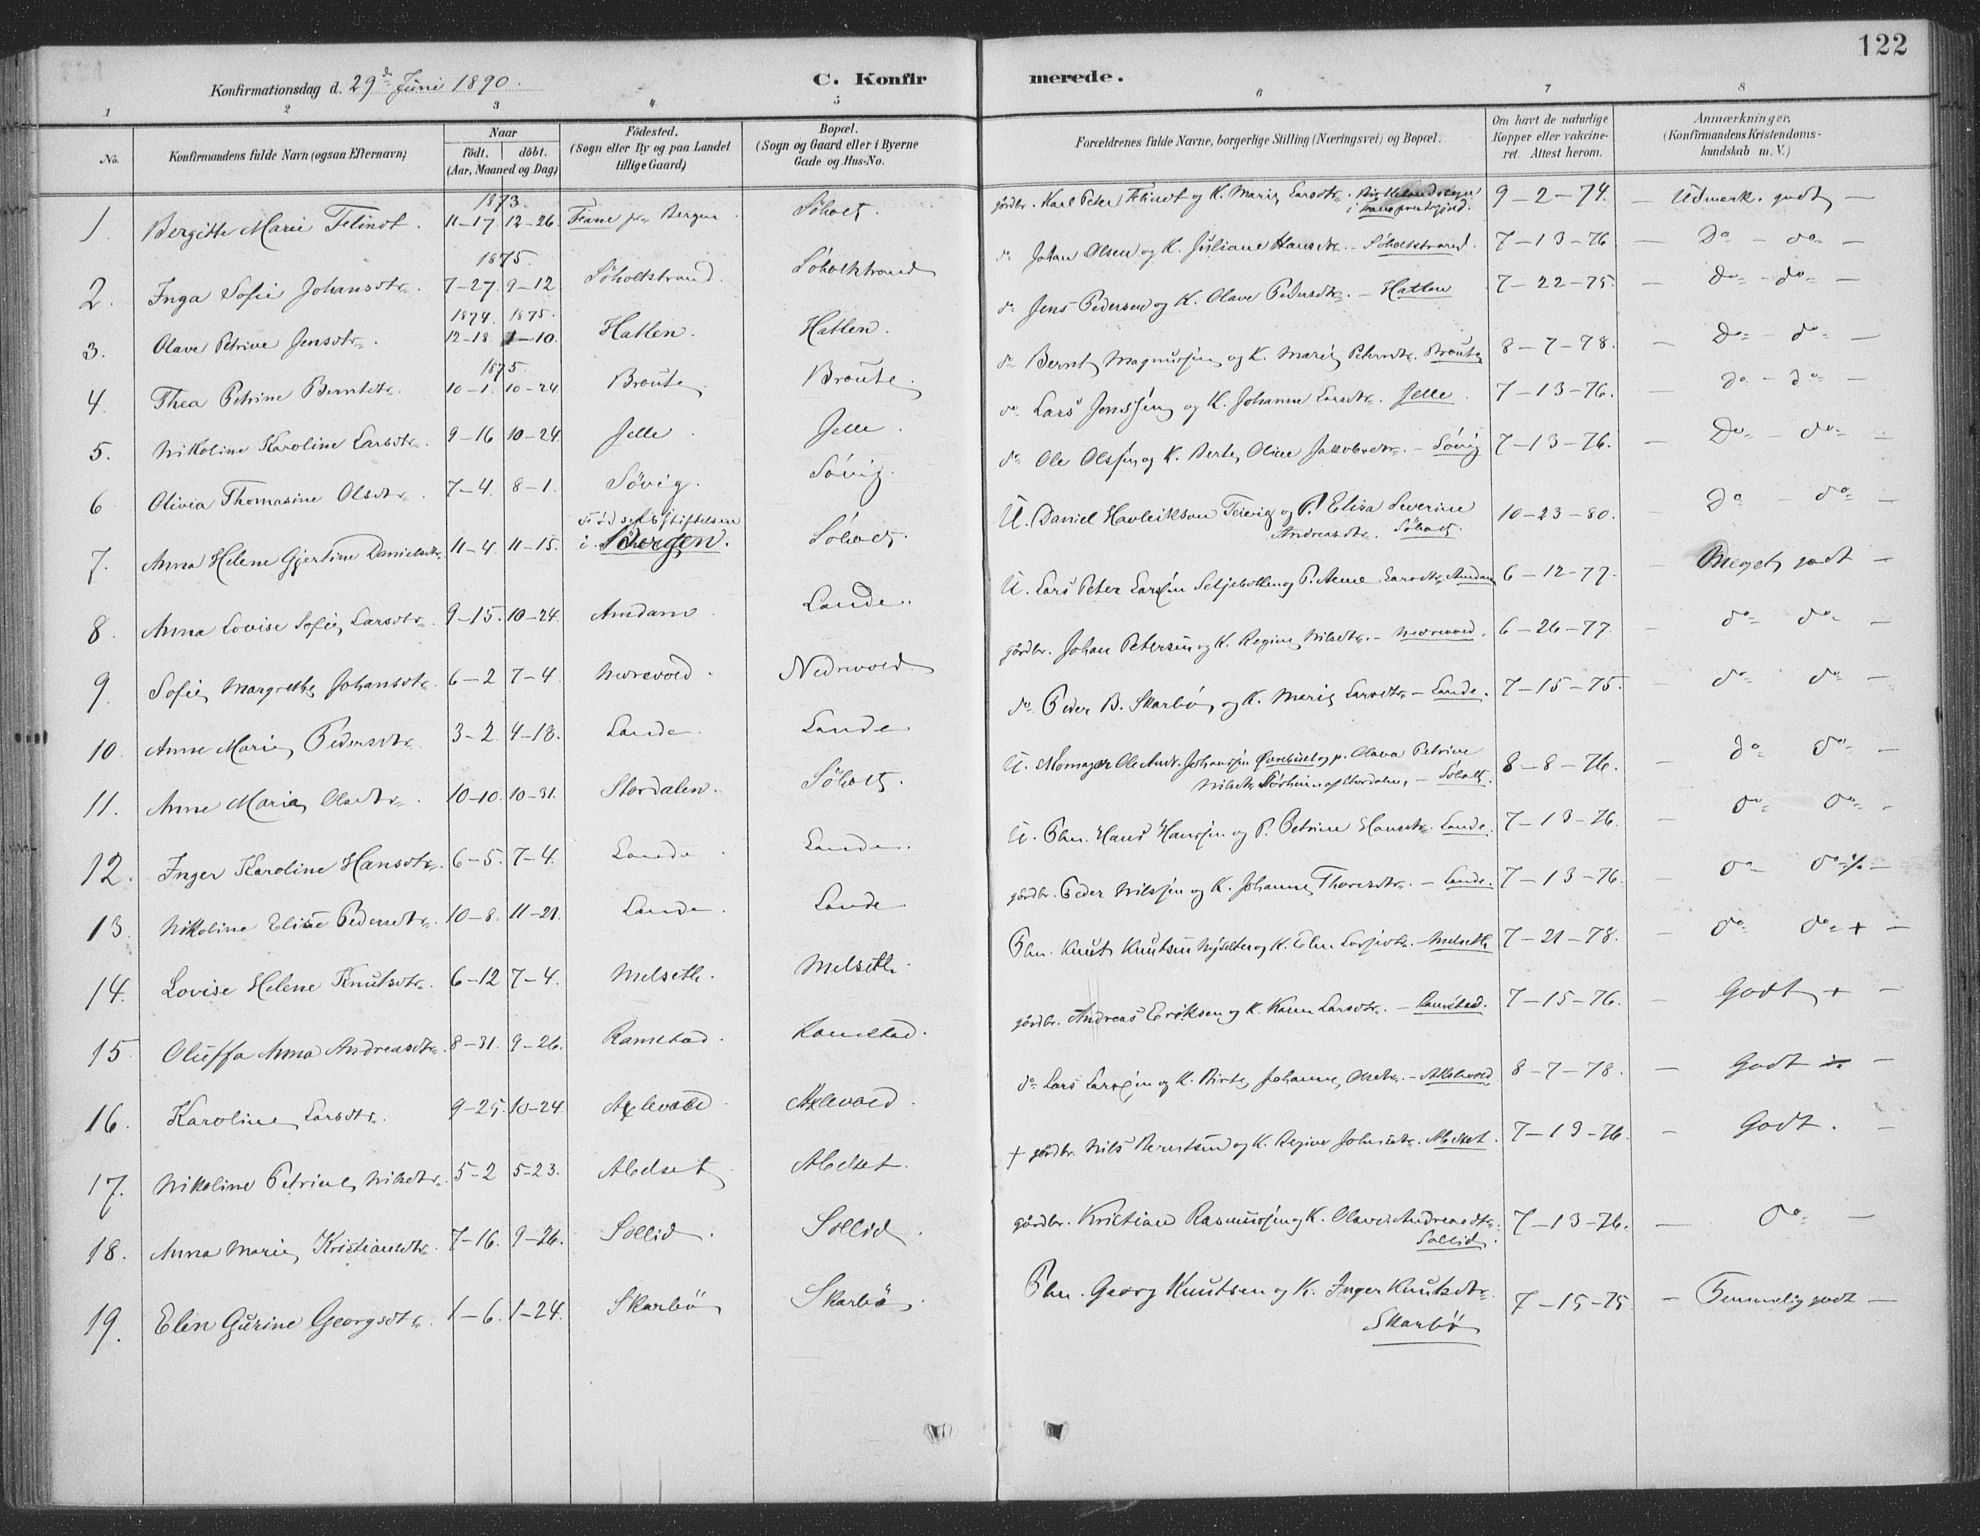 122
Konfirmationsdag d. 29de Juni 1890.
C. Konfirmerede.
1 2 3 4 5 6 7 8
No. Konfirmandens fulde Navn (ogsaa Efternavn) Naar Födt. döbt. (Aar, Maaned og Dag) Födested. (Sogn eller By og paa Landet tillige Gaard) Bopæl. (Sogn og Gaard eller i Byerne Gade og Hus-No. Forældrenes fulde Navne, borgerlige Stilling (Næringsvei) og Bopæl. Om havt de naturlige Kopper eller vakcineret. Attest herom. Anmærkninger. (Konfirmandens Kristendomskundskab m. V.)
1873.
1. Bergitte Marie Flindt. 11-17 12-26 Fane pr. Bergen. Söholt. gårdbr. Karl Peter Flindt og K. Marie Larsdtr. 9-2-74. Udmærk. godt
1875.
2. Inga Sofie Johansdtr. 7-27. 9-12 Söholtstrand. Söholtstrand do Johan Olsen og K. Juliane Hansdtr. - Söholtstrand. 7-13-76 Do - do
1874. 1875.
3. Olave Petrine Jensdtr. 12-18. 1-10. Hatlen. Hatlen. do Jens Pedersen og K. Olave Pedersdtr. - Hatlen 7-22-75. Do - do
1875.
4. Thea Petrine Berntdtr. 10-1. 10-24 Braute. Braute. do Bernt Magnussen og K. Marie Petersdtr. Braute 8-7-78. Do - do
5. Nikoline Karoline Larsdtr. 9-16 10-24. Jelle. Jelle. do Lars Jenssen og K. Johanne Larsdtr. Jelle. 7-13-76. do - do
6 Olivia Thomasine Olsdtr. 7-4. 8-1. Sövig. Sövig. do Ole Olssen og K. Berte Oline Jakobsdtr. - Sövig 7-13-76. Do - do
7. Anna Helene Gjertine Danielsdtr. 11-4. 11-15. Fødselsstiftelsen i Bergen. Söholt. U. Daniel Havleikson Teivig og P. Elisa Severine Andreasdtr. Söholt. 10-23-80. Do - do
8. Anna Lovise Sofie Larsdtr. 9-15. 10-24. Amdam Lande. U. Lars Peter Larssen Seljebotten og P. Anne Larsdtr. Amdam 6-12-77. Meget godt
9. Sofie Margrethe Johansdtr. 6-2 7-4. Nørevold. Nedrevold. gårdbr. Johan Petersen og K. Regine Nilsdtr. - Nørevold. 6-26-77. do do
10. Anne Marie Pedersdtr. 3-2. 4-18. Lande. Lande. do Peder B. Skarbö og K. Marie Larsdtr. - Lande. 7-15-75. do do
11. Anne Marie Olsdtr. 10-10. 10-31. Stordalen. Söholt. U. Skomager Ole Andr. Johanssen Øvrebust og p. Olava Petrine Nilsdtr. af Stordalen, - Söholt. 8-8-76. do do
12. Inger Karoline Hansdtr. 6-5. 7-4. Lande. Lande. U. Phm. Hans Hanssen og P. Petrine Hansdtr. Lande. 7-13-76. do do
13. Nikoline Elise Pedersdtr. 10-8. 11-21. Lande. Lande gårdbr. Peder Nilssen og K. Johanne Thoresdtr. - Lande. 7-13-76. do do %
14. Lovise Helene Knutsdtr. 6-12 7-4. Melseth. Melseth. Phm. Knut Knutsen og K. Elen - Melseth 7-21-78. do do +
15 Oluffa Anna Andreasdtr. 8-31. 9-26. Ramstad. Ramstad. gårdbr. Andreas Eriksen og K. Karen Larsdtr. - Ramstad. 7-15-76. Godt +
16. Karoline Larsdtr. 9-25. 10-24. Akslevold Akslevold. do Lars Larssen og K. Birte Johanne Olsdtr. - Akslevold 8-7-78. Godt
17. Nikoline Petrine Nilsdtr. 5-2 5-23. Abelset. Abelset. + gårdbr. Nils Berntsen og K. Regine Johnsdtr. Abelset. 7-13-76. Godt.
18. Anna Marie Kristiansdtr. 7-16. 9-26. Sollid. Sollid. gårdbr. Kristian Rasmussen og K. Olave Andreasdtr. Sollid. 7-13-76. do
19. Elen Gurine Georgsdtr. 1-6. 1-24. Skarbö Skarbö. Phm. Georg Knutsen og K. Inger Knutsdtr. Skarbö 7-15-75. Temmelig godt